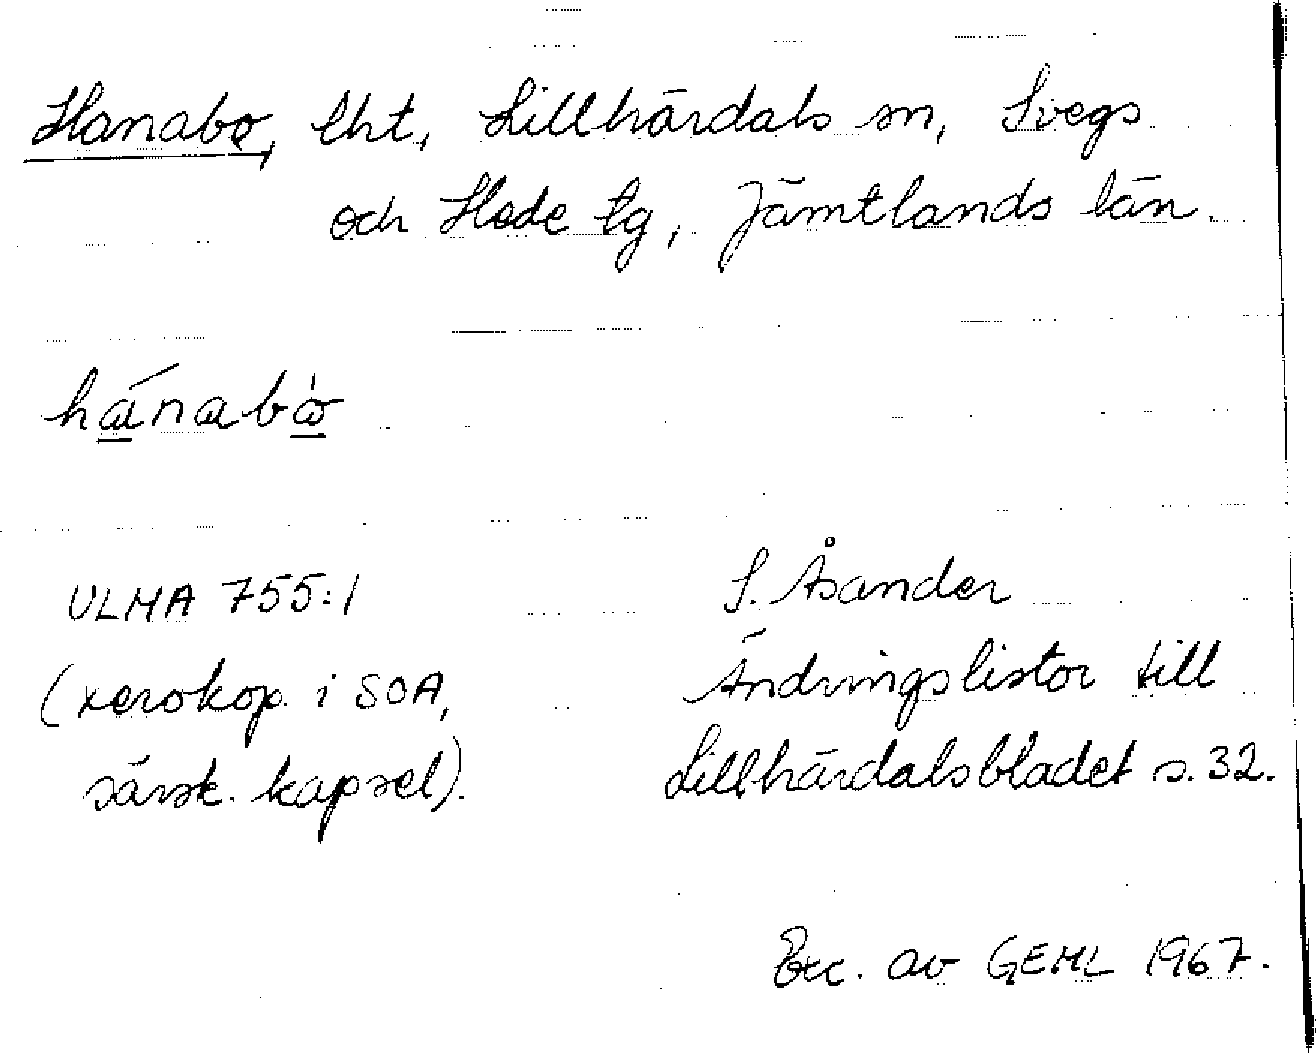 Hanabo, lht, Lillhärdals sn, Svegs
och Hede tg, Jämtlands län.
hánabò
ULMA 755:1
(xerokop. i SOA,
särsk. kapsel).
S. Åsander
Ändringslistor till
Lillhärdalsbladet s. 32.
Exc. av GEHL 1967.